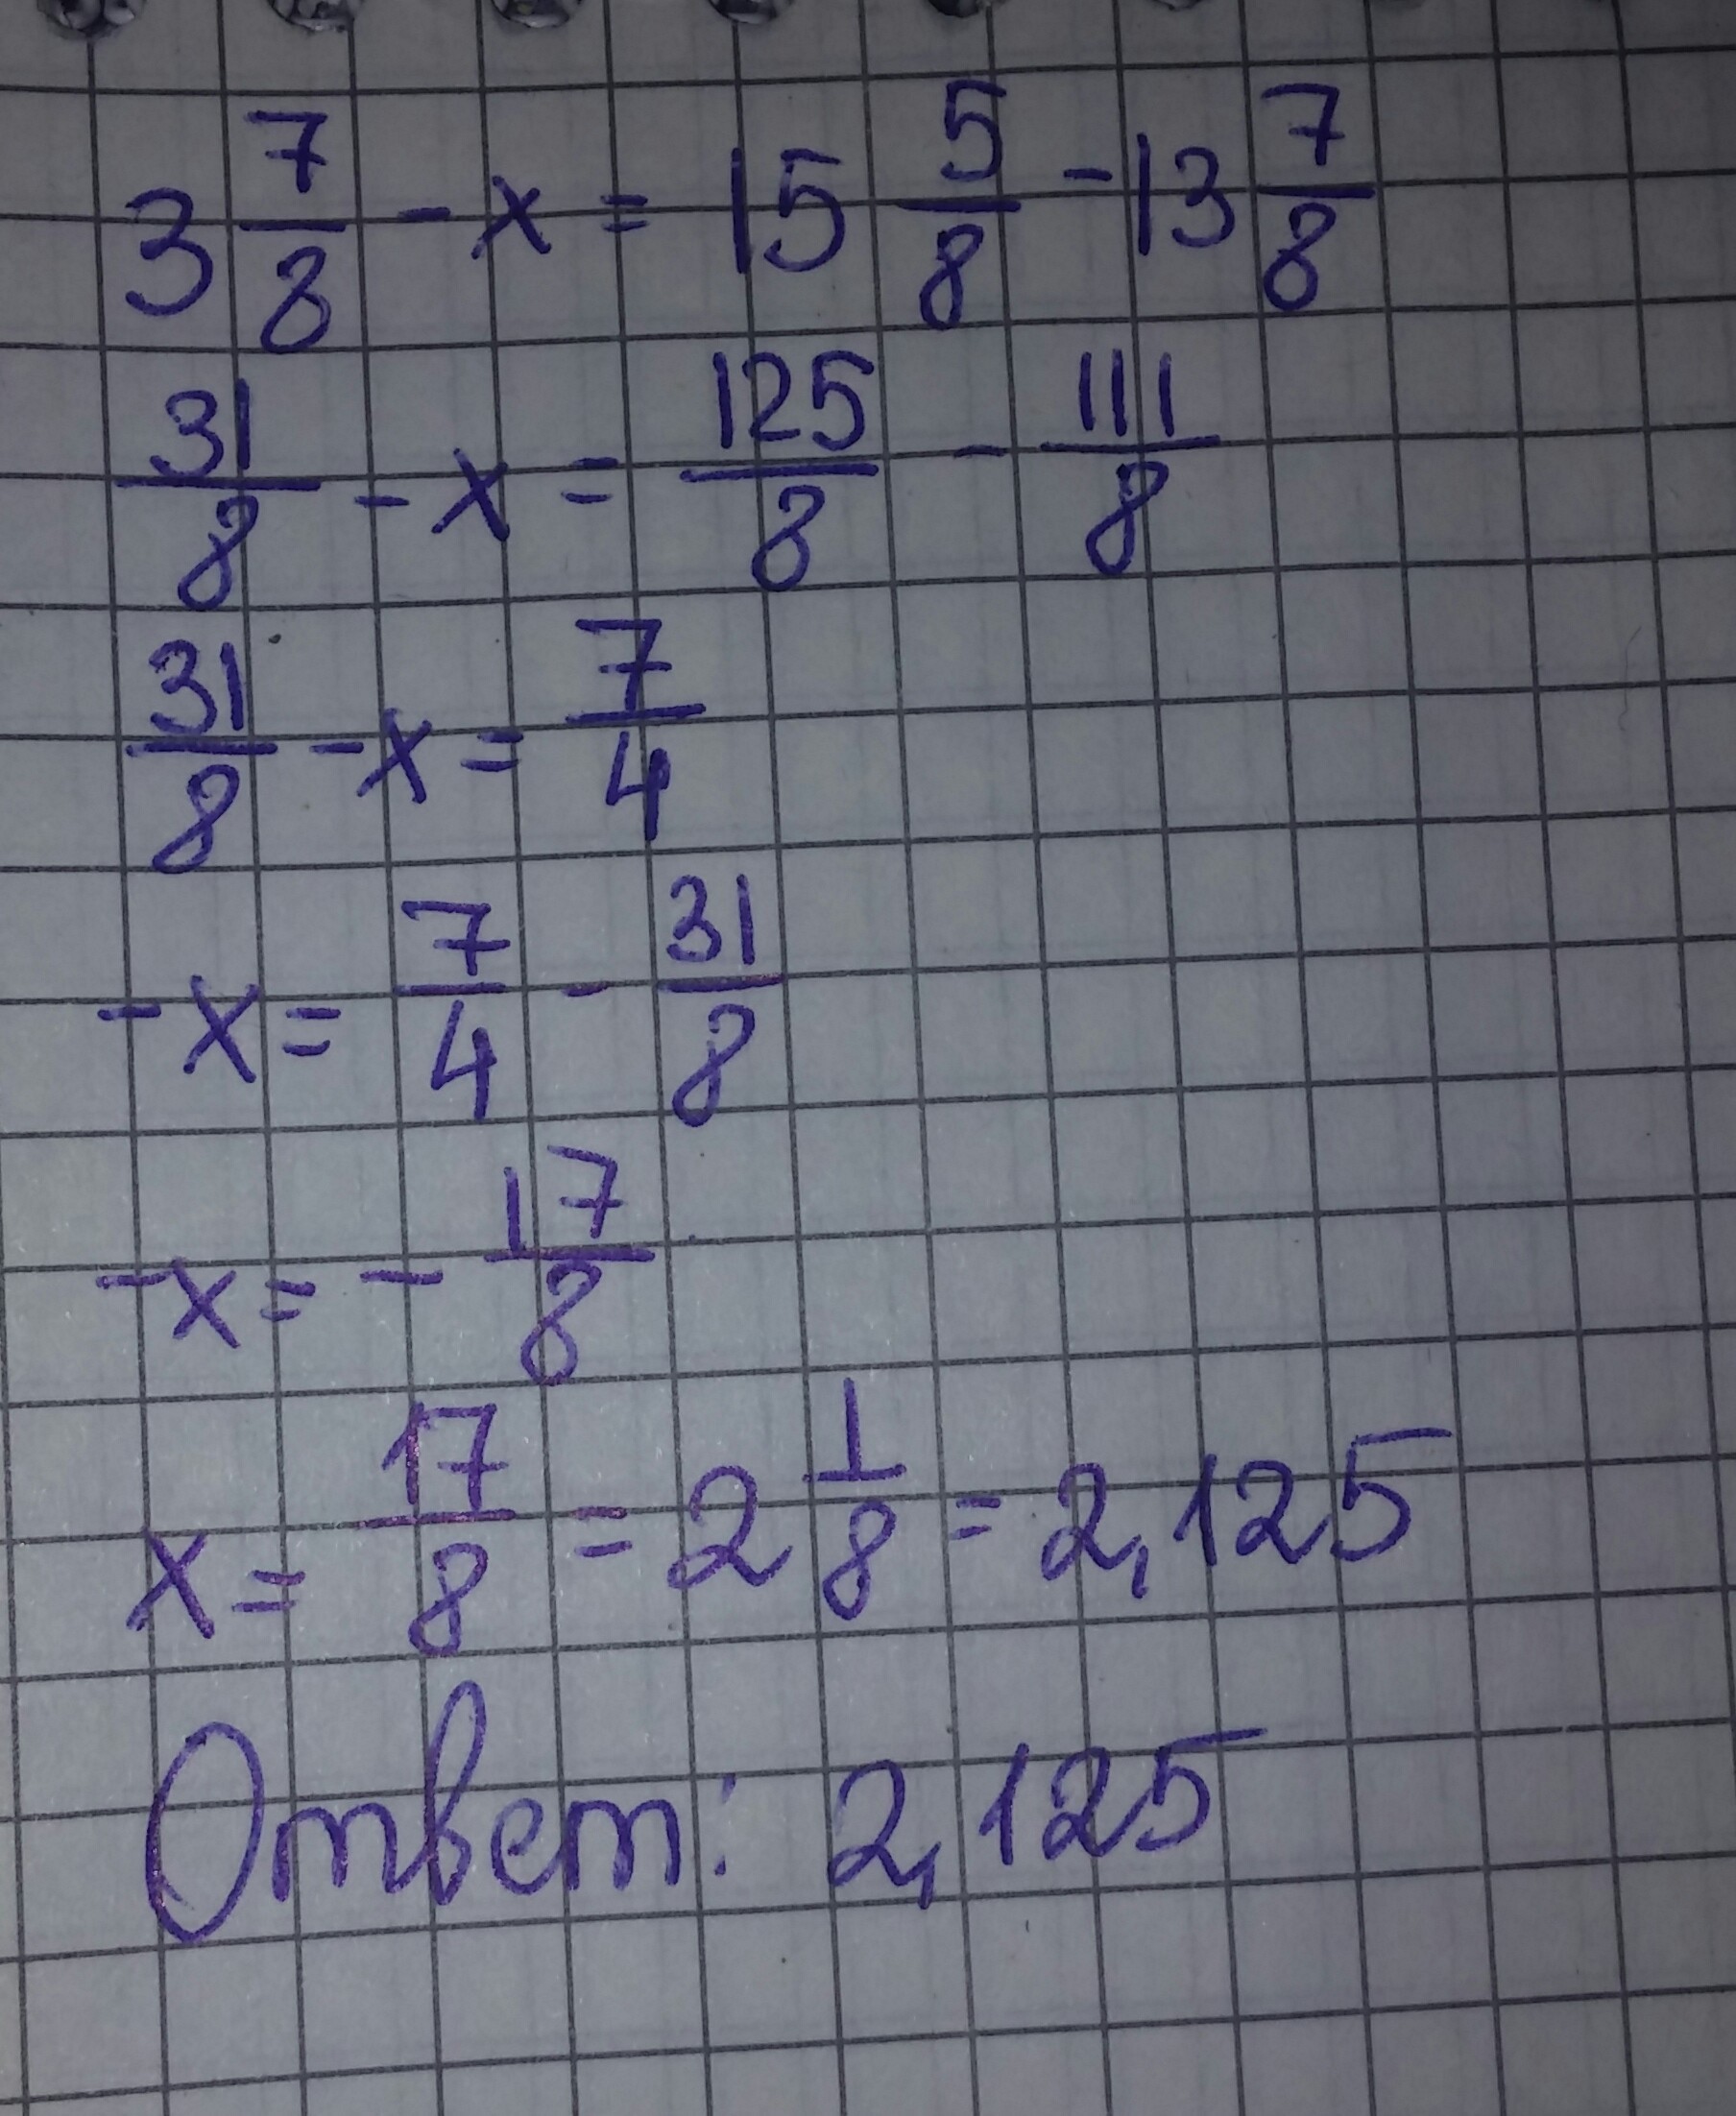 3 7/8 - x = 15 5/8 - 13 7/8
31/8 - x = 125/8 - 111/8
31/8 - x = 7/4
-x = 7/4 - 31/8
-x = - 17/8
x = 17/8 = 2 1/8 = 2,125
Ответ: 2,125